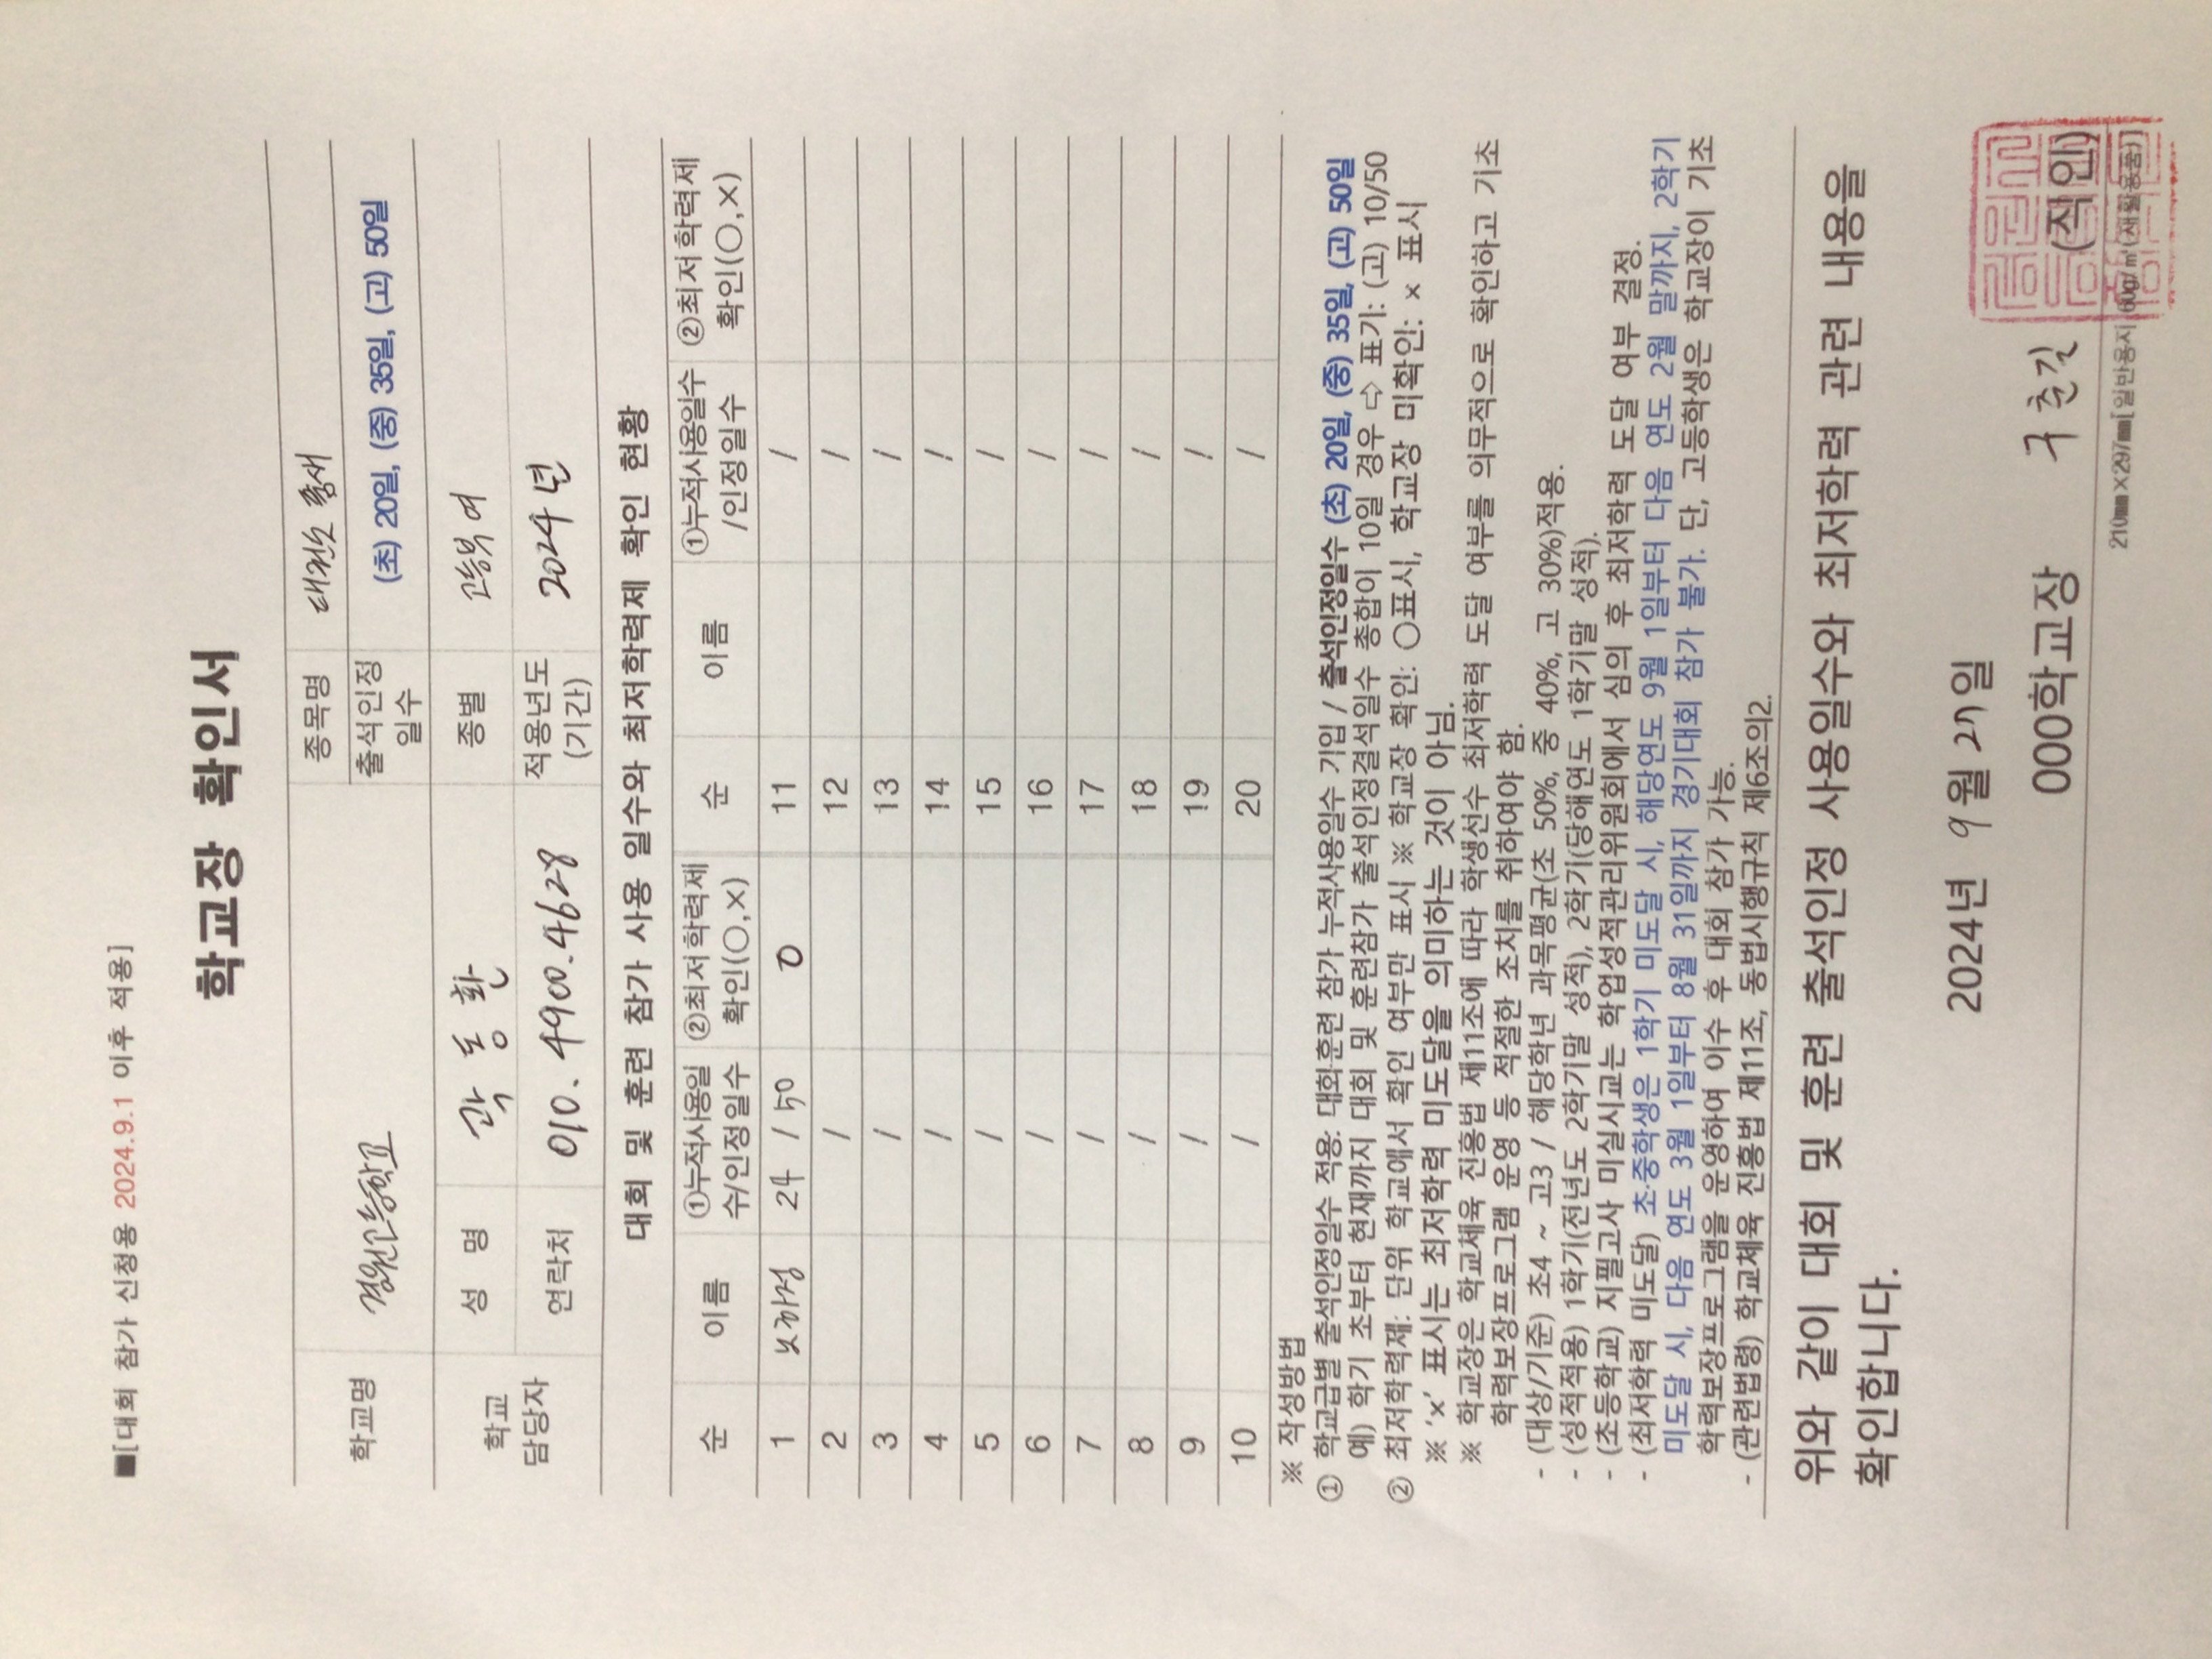 ■[대회 참가 신청용 2024.9.1 이후 적용]
학교장 확인서
학교명 경원고등학교 종목명 태권도 품새
출석인정 일수 (초) 20일, (중) 35일, (고) 50일
학교 담당자 성 명 곽동환 종별 고등부 여
연락처 010.4900.4628 적용년도 (기간) 2024년
대회 및 훈련 참가 사용 일수와 최저학력제 확인 현황
순 이름 ①누적사용일수/인정일수 ②최저학력제 확인(○,×) 순 이름 ①누적사용일수/인정일수 ②최저학력제 확인(○,×)
1 24 / 50 O 11 /
2 / 12 /
3 / 13 /
4 / 14 /
5 / 15 /
6 / 16 /
7 / 17 /
8 / 18 /
9 / 19 /
10 / 20 /
※ 작성방법
① 학교급별 출석인정일수 적용: 대회·훈련 참가 누적사용일수 기입 / 출석인정일수 (초) 20일, (중) 35일, (고) 50일
예) 학기 초부터 현재까지 대회 및 훈련참가 출석인정결석일수 총합이 10일 경우 ⇨ 표기: (고) 10/50
② 최저학력제: 단위 학교에서 확인 여부만 표시 ※ 학교장 확인: ○표시, 학교장 미확인: × 표시
※ ‘×’ 표시는 최저학력 미도달을 의미하는 것이 아님.
※ 학교장은 학교체육 진흥법 제11조에 따라 학생선수 최저학력 도달 여부를 의무적으로 확인하고 기초
학력보장프로그램 운영 등 적절한 조치를 취하여야 함.
- (대상/기준) 초4 ~ 고3 / 해당학년 과목평균(초 50%, 중 40%, 고 30%)적용.
- (성적적용) 1학기(전년도 2학기말 성적), 2학기(당해연도 1학기말 성적).
- (초등학교) 지필고사 미실시교는 학업성적관리위원회에서 심의 후 최저학력 도달 여부 결정.
- (최저학력 미도달) 초·중학생은 1학기 미도달 시, 해당연도 9월 1일부터 다음 연도 2월 말까지, 2학기
미도달 시, 다음 연도 3월 1일부터 8월 31일까지 경기대회 참가 불가. 단, 고등학생은 학교장이 기초
학력보장프로그램을 운영하여 이수 후 대회 참가 가능.
- (관련법령) 학교체육 진흥법 제11조, 동법시행규칙 제6조의2.
위와 같이 대회 및 훈련 출석인정 사용일수와 최저학력 관련 내용을
확인합니다.
2024년 9월 27일
000학교장 구춘길 (직인)
210㎜×297㎜[일반용지 60g/㎡(재활용품)]